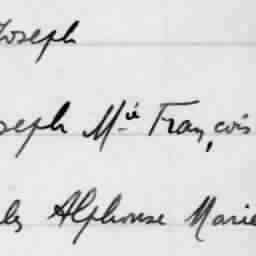 Joseph
seph Mie François
Alphonse Marie